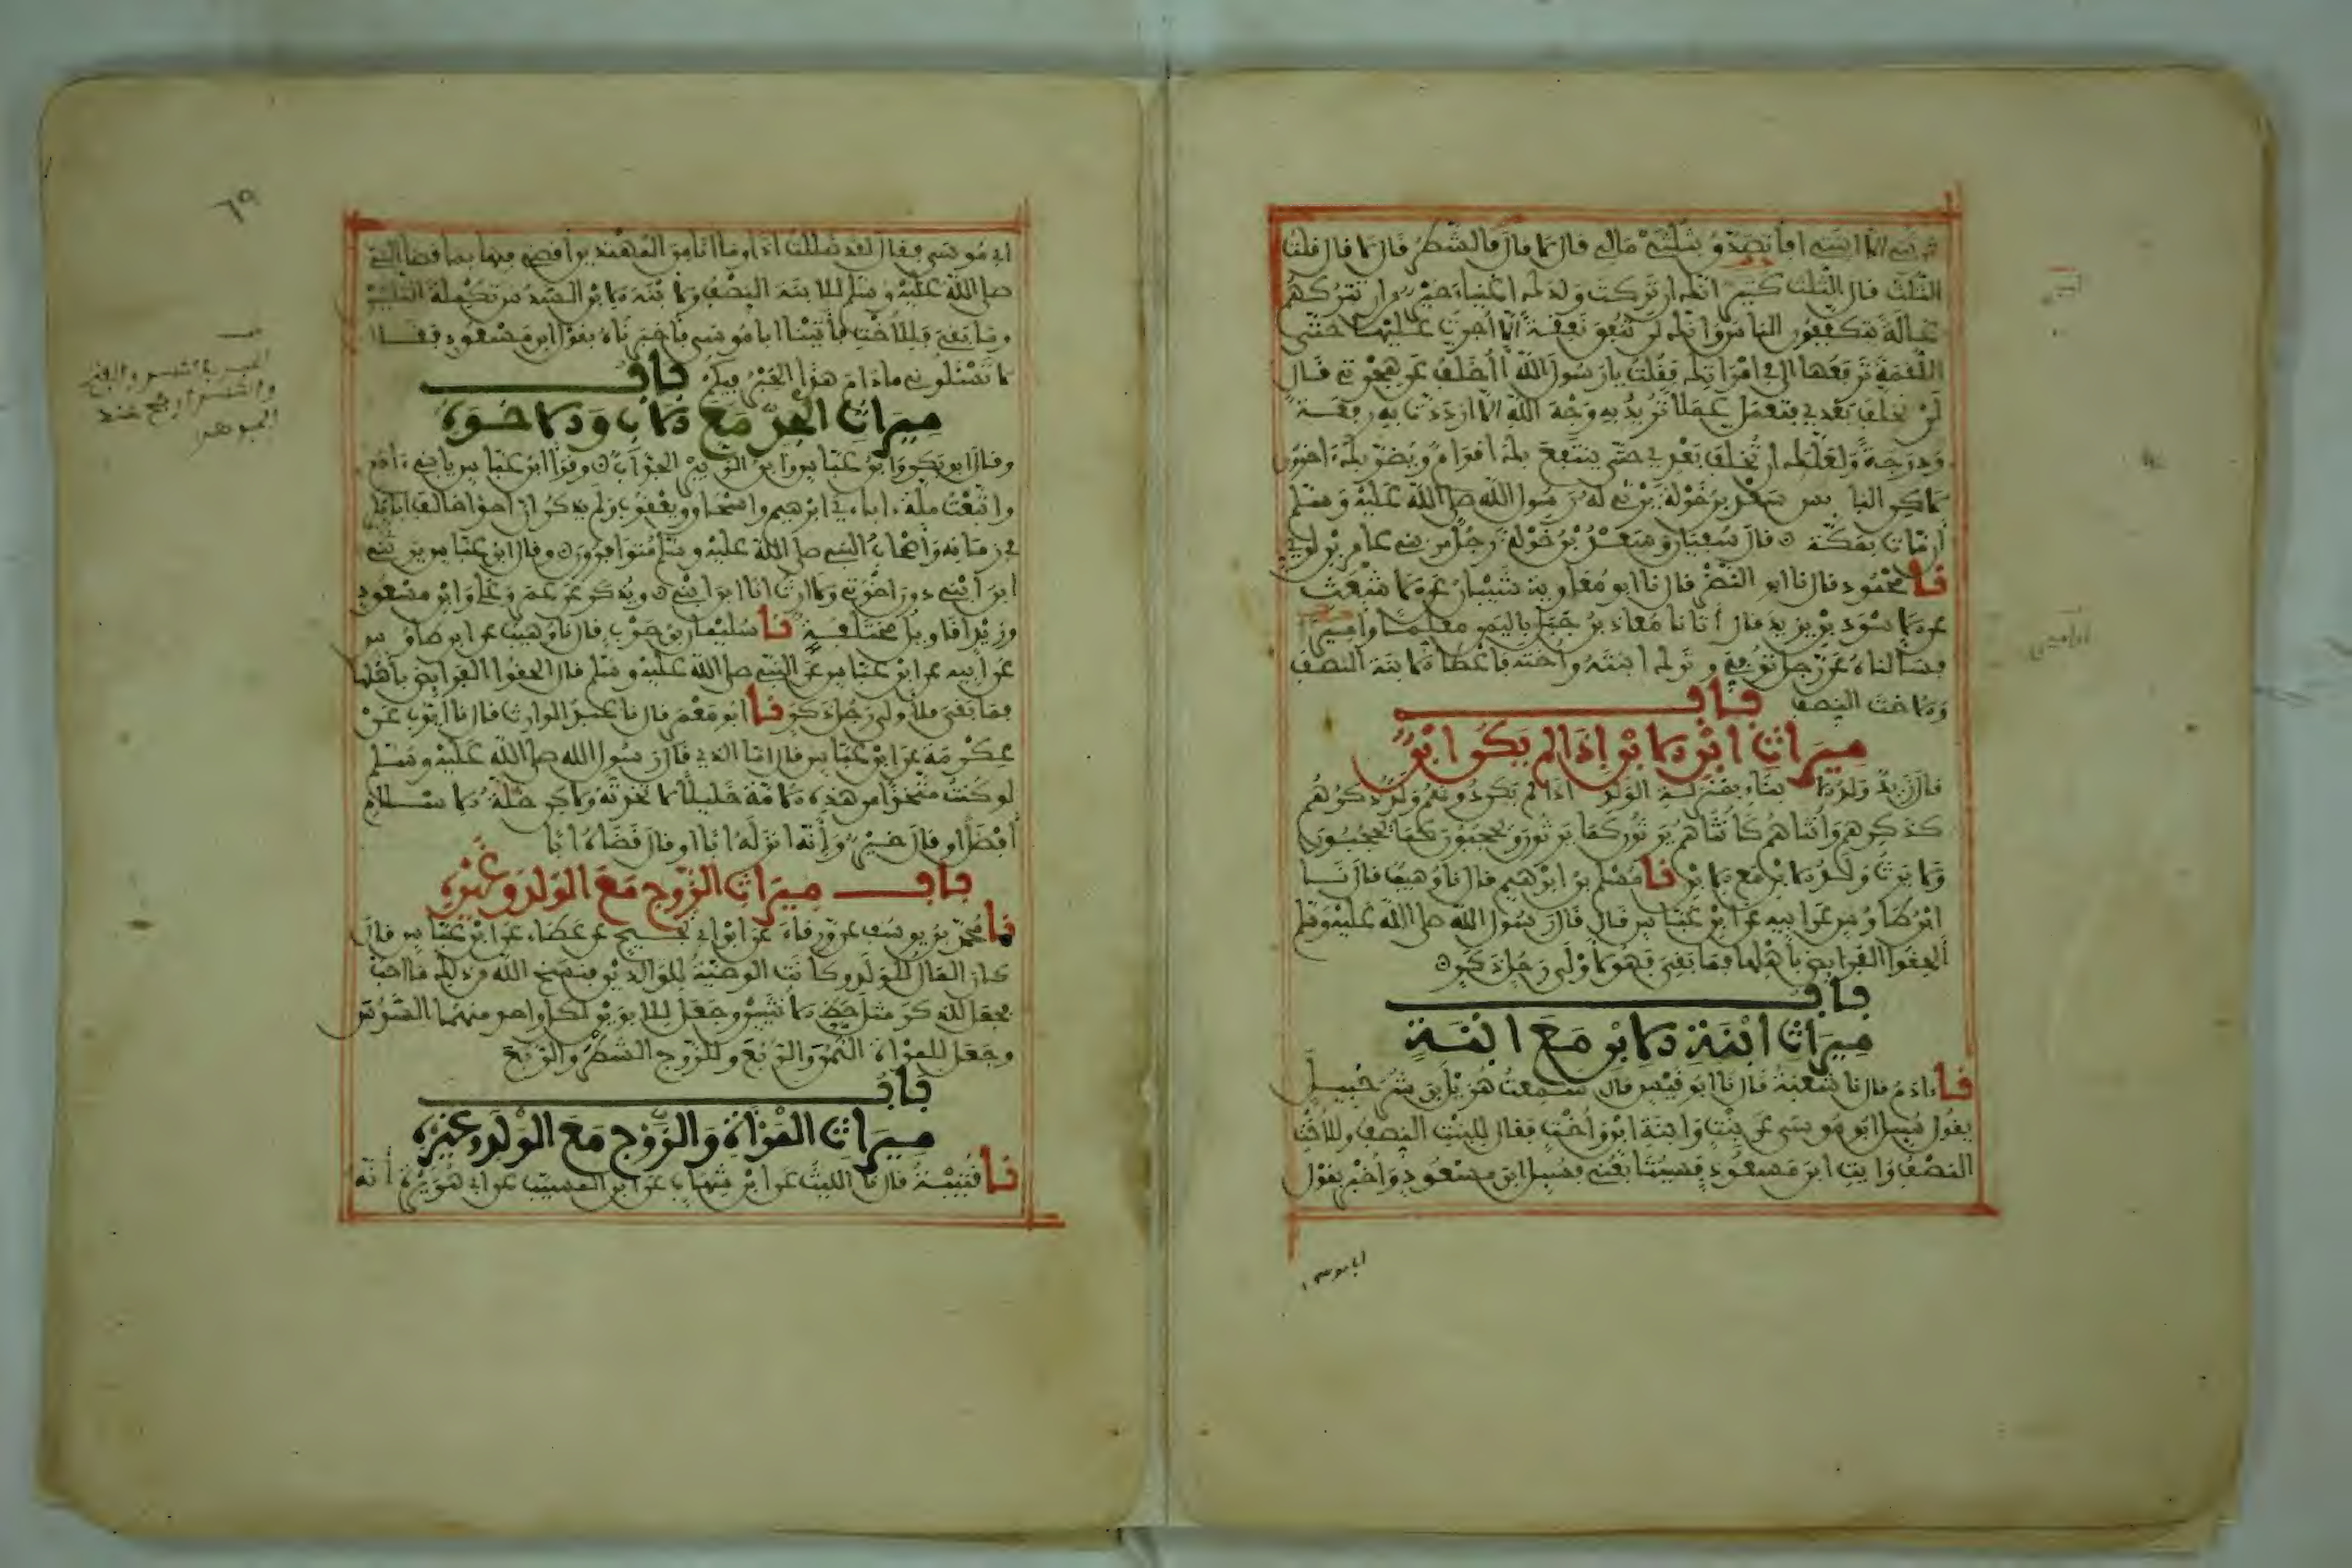 يرثني الا ابنتي افاتصدق بثلثي مالي قال لا قال فالشطر قال لا قال قلت
الثلث قال الثلث كثير انك ان تركت ولدك اغنياء خير من ان تتركهم
عالة يتكففون الناس وانك لن تنفق نفقة الا اجرت عليها حتى
اللقمة ترفعها الى في امراتك فقلت يا رسول الله ااخلف عن هجرتي قال
لن تخلف بعدي فتعمل عملا تريد به وجه الله الا ازددت به رفعة
ودرجة ولعلك ان تخلف بعدي حتى ينتفع بك اقوام ويضر بك ءاخرون
لاكن البايس سعد بن خولة يرثي له رسول الله صلى الله عليه وسلم
أن مات بمكة قال سفيان وسعد بن خولة رجل من بني عامر بن لوي
نا محمود قال نا ابو النضر قال نا ابو معاوية شيبان عن الاشعث
عن الاسود بن يزيد قال أتانا معاذ بن جبل باليمن معلما واميرا
فسالناه عن رجل توفي وترك ابنته واخته فاعطا الابنة النصف
والاخت النصف باب
ميراث ابن الابن إذا لم يكن ابن
قال زيد ولد الابناء بمنزلة الولد اذا لم يكن دونهم ولد ذكرهم
كذكرهم وانثاهم كانثاهم يرثون كما يرثون ويحجبون كما يحجبون
ولا يرث ولد الابن مع الابن نا مسلم بن ابرهيم قال نا وهيب قال نا
ابن طاوس عن ابيه عن ابن عباس قال قال رسول الله صلى الله عليه وسلم
ألحقوا الفرايض بأهلها فما بقي فهو لأولى رجل ذكر
باب
ميراث ابنة الابن مع ابنة
نا ءادم قال نا شعبة قال نا ابو قيس قال سمعت هزيل بن شرحبيل
يقول سيل ابو موسى عن بنت وابنة ابن واخت فقال للبنت النصف وللأخت
النصف وايت ابن مسعود فسيتابعني فسيل ابن مسعود واخبر بقول
ابا موسى
٦٩
ابي موسى فقال لقد ضللت اذا وما انا من المهتدين أقضي فيها بما قضا النبي
صلى الله عليه وسلم للابنة النصف ولابنة الابن السدس تكملة الثلثين
وما بقي فللأخت فأتينا ابا موسى فاخبرناه بقول ابن مسعود فقال
لا تسئلوني ما دام هذا الحبر فيكم باب
ميراث الجد مع الاب والاخوة
وقال ابو بكر وابن عباس وابن الزبير الجد أب وقرا ابن عباس يا بني ءادم
واتبعت ملة ءاباءي ابرهيم واسحاق ويعقوب ولم يذكر ان احدا خالف ابا بكر
في زمانه وأصحاب النبي صلى الله عليه وسلم متوافرون وقال ابن عباس يرثني
ابن ابني دون اخوتي ولا ارث انا ابن ابني ويذكر عن عمر وعلي وابن مسعود
وزيد اقاويل مختلفة نا سليمان بن حرب قال نا وهيب عن ابن طاوس
عن أبيه عن ابن عباس عن النبي صلى الله عليه وسلم قال الحقوا الفرايض بأهلها
فما بقي فلأولى رجل ذكر نا ابو معمر قال نا عبد الوارث قال نا ايوب عن
عكرمة عن ابن عباس قال اما الذي قال رسول الله صلى الله عليه وسلم
لو كنت متخذا من هذه الامة خليلا لاتخذته ولاكن خلة الاسلام
أفضل او قال خير وإنه انزله ابا او قال قضاه ابا
باب ميراث الزوج مع الولد وغيره
نا محمد بن يوسف عن ورقاء عن ابن ابي نجيح عن عطاء عن ابن عباس قال
كان المال للولد وكانت الوصية للوالدين فنسخ الله من ذلك ما احب
فجعل للذكر مثل حظ الانثيين وجعل للابوين لكل واحد منهما السدس
وجعل للمرأة الثمن والربع وللزوج الشطر والربع
باب
ميراث المرأة والزوج مع الولد وغيره
نا قتيبة قال نا الليث عن ابن شهاب عن ابن المسيب عن ابي هريرة أنه